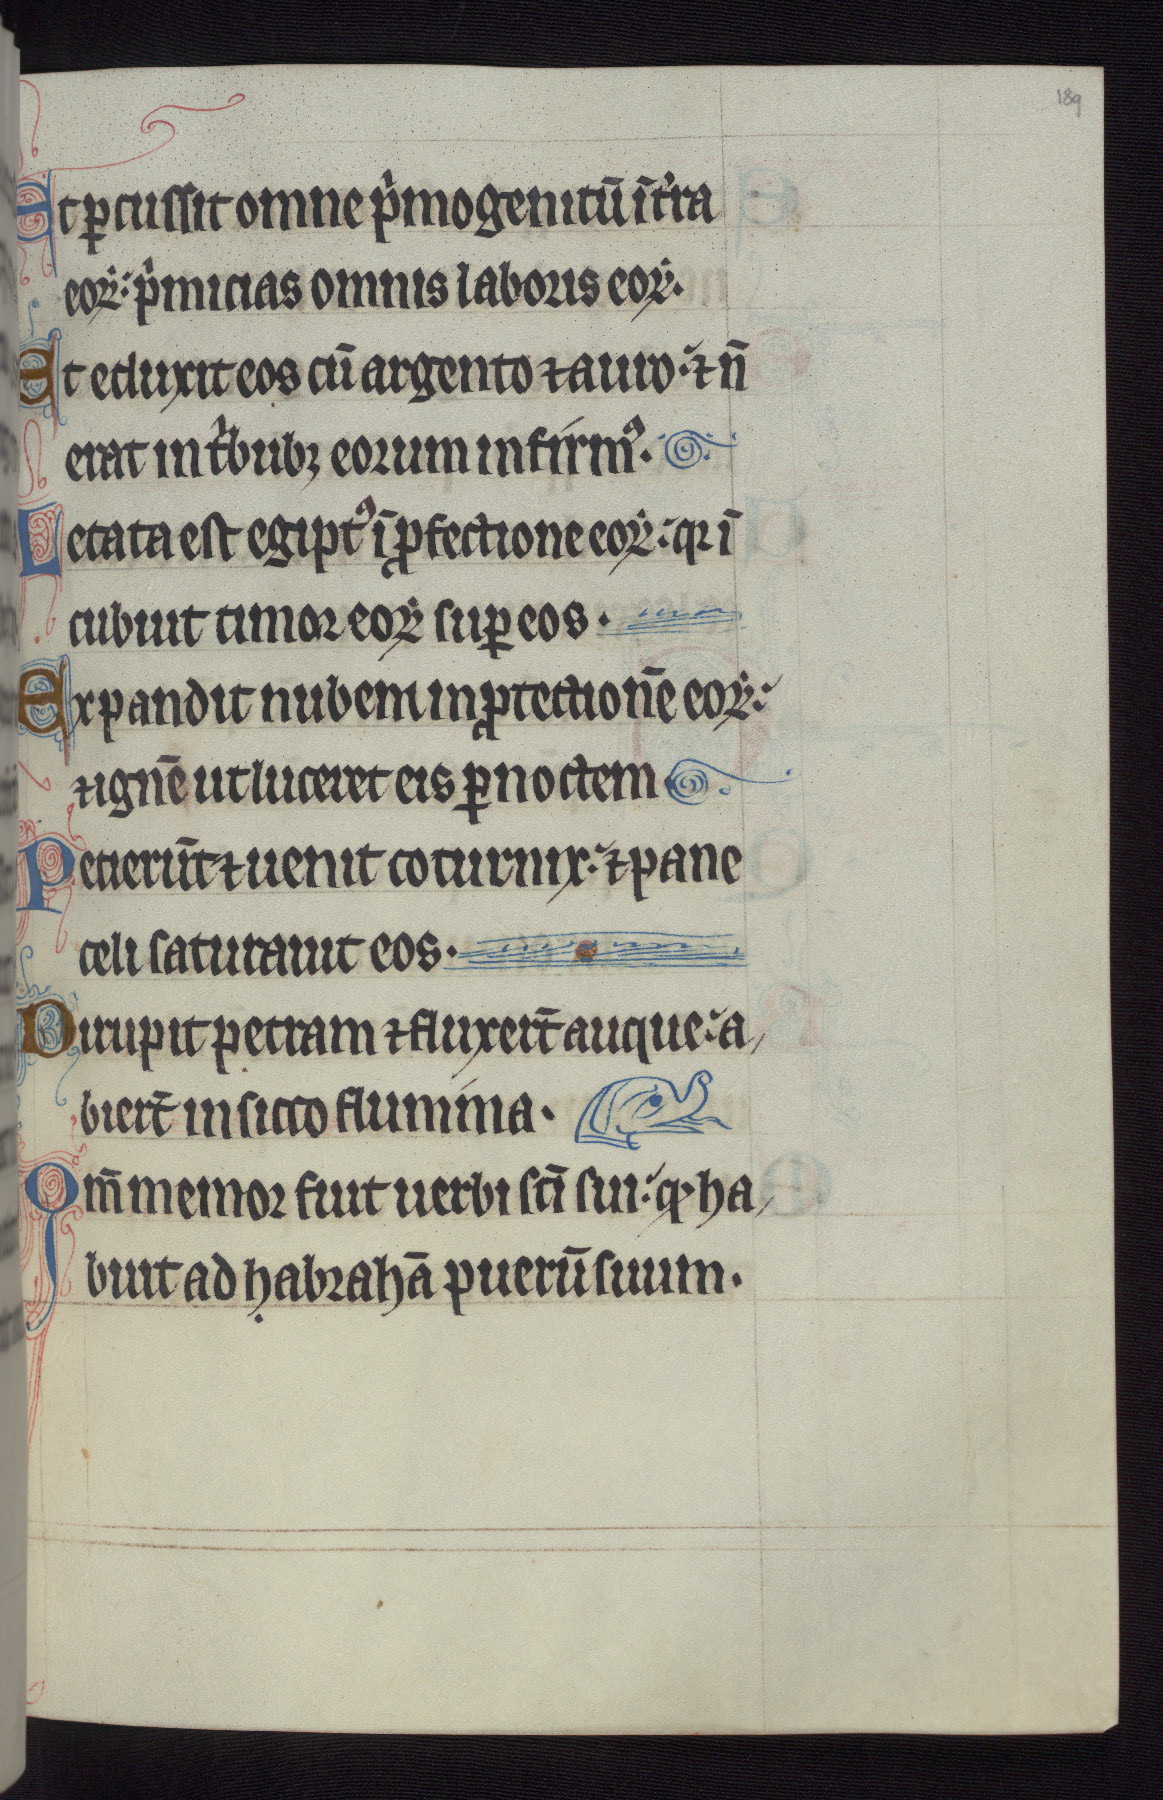 189
Et ꝑcussit omne pͥmogenitū ī t̄ra
eoꝝ: pͥmicias omnis laboris eoꝝ.
Et eduxit eos cū argento ⁊ auro: ⁊ n̄
erat in tͥbubꝫ eorum infirmꝰ.
Letata est egiptꝰ ī ꝓfectione eoꝝ: qꝛ ī
cubuit timor eoꝝ suꝑ eos.
Expandit nubem in ꝓtectionē eoꝝ:
⁊ ignē ut luceret eis ꝑ noctem
Petierūt ⁊ uenit coturnix: ⁊ pane
celi saturauit eos.
Dirupit petram ⁊ fluxert̄ auque: a/
biert̄ in sicco flumina.
Qm̄ memor fuit uerbi sc̄i sui: qͦ ha/
buit ad habrahā puerū suum.